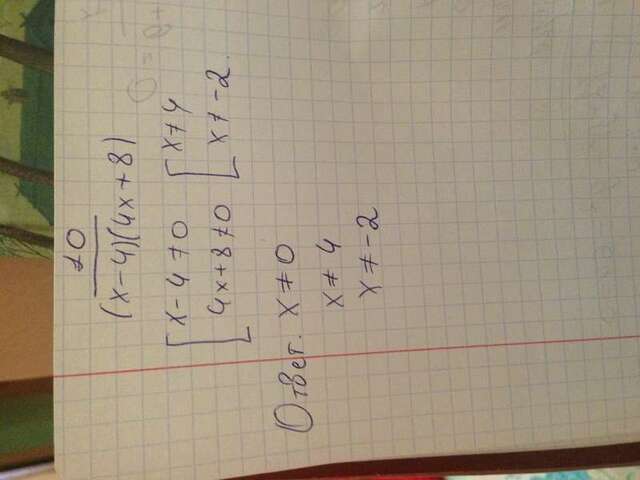 10
(x-4)(4x+8)
[x-4≠0 [x≠4
[4x+8≠0 [x≠-2.
Ответ. x≠0
x≠4
x≠-2